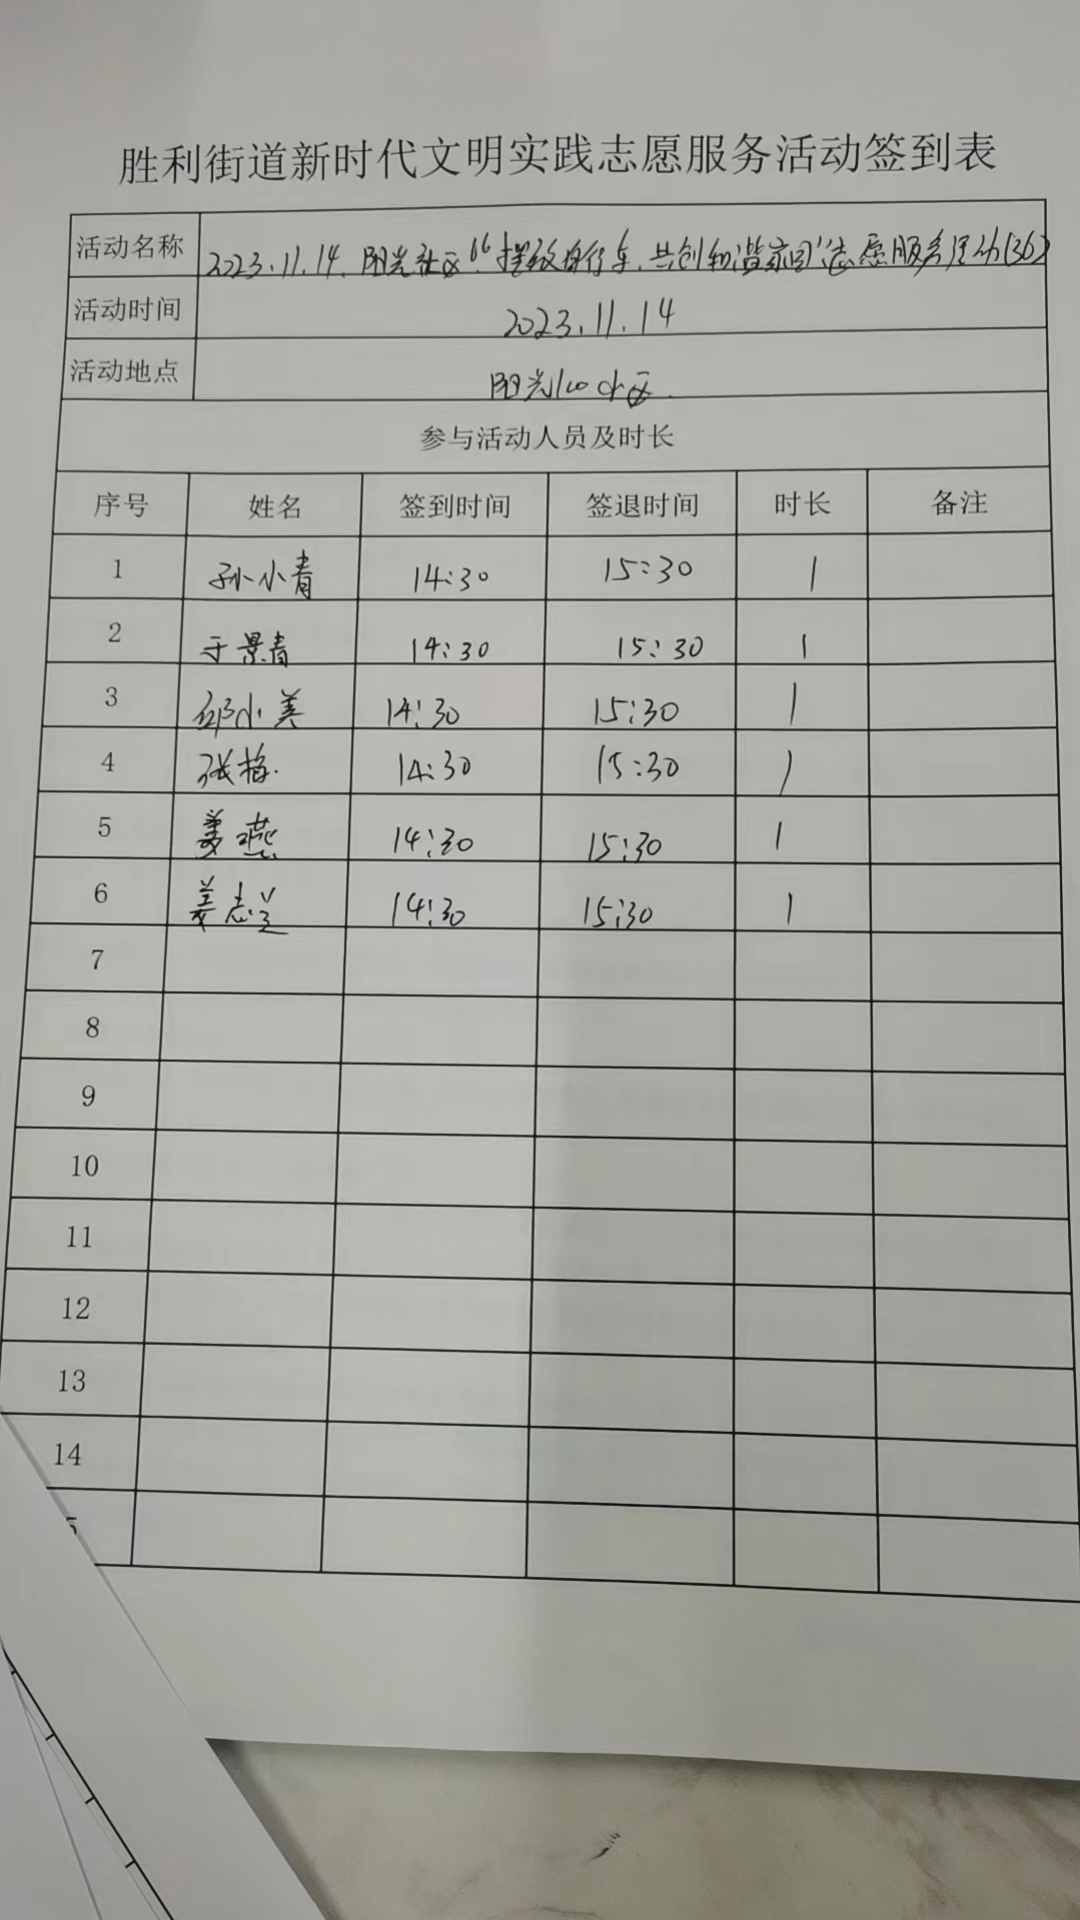 胜利街道新时代文明实践志愿服务活动签到表
活动名称 2023.11.14.阳光社区“摆放自行车,共创和谐家园”志愿服务活动(36)
活动时间 2023.11.14
活动地点 阳光100小区.
参与活动人员及时长
序号 姓名 签到时间 签退时间 时长 备注
1 孙小青 14:30 15:30 1
2 于景青 14:30 15:30 1
3 邱小美 14:30 15:30 1
4 张梅. 14:30 15:30 1
5 姜燕 14:30 15:30 1
6 姜志兰 14:30 15:30 1
7
8
9
10
11
12
13
14
5